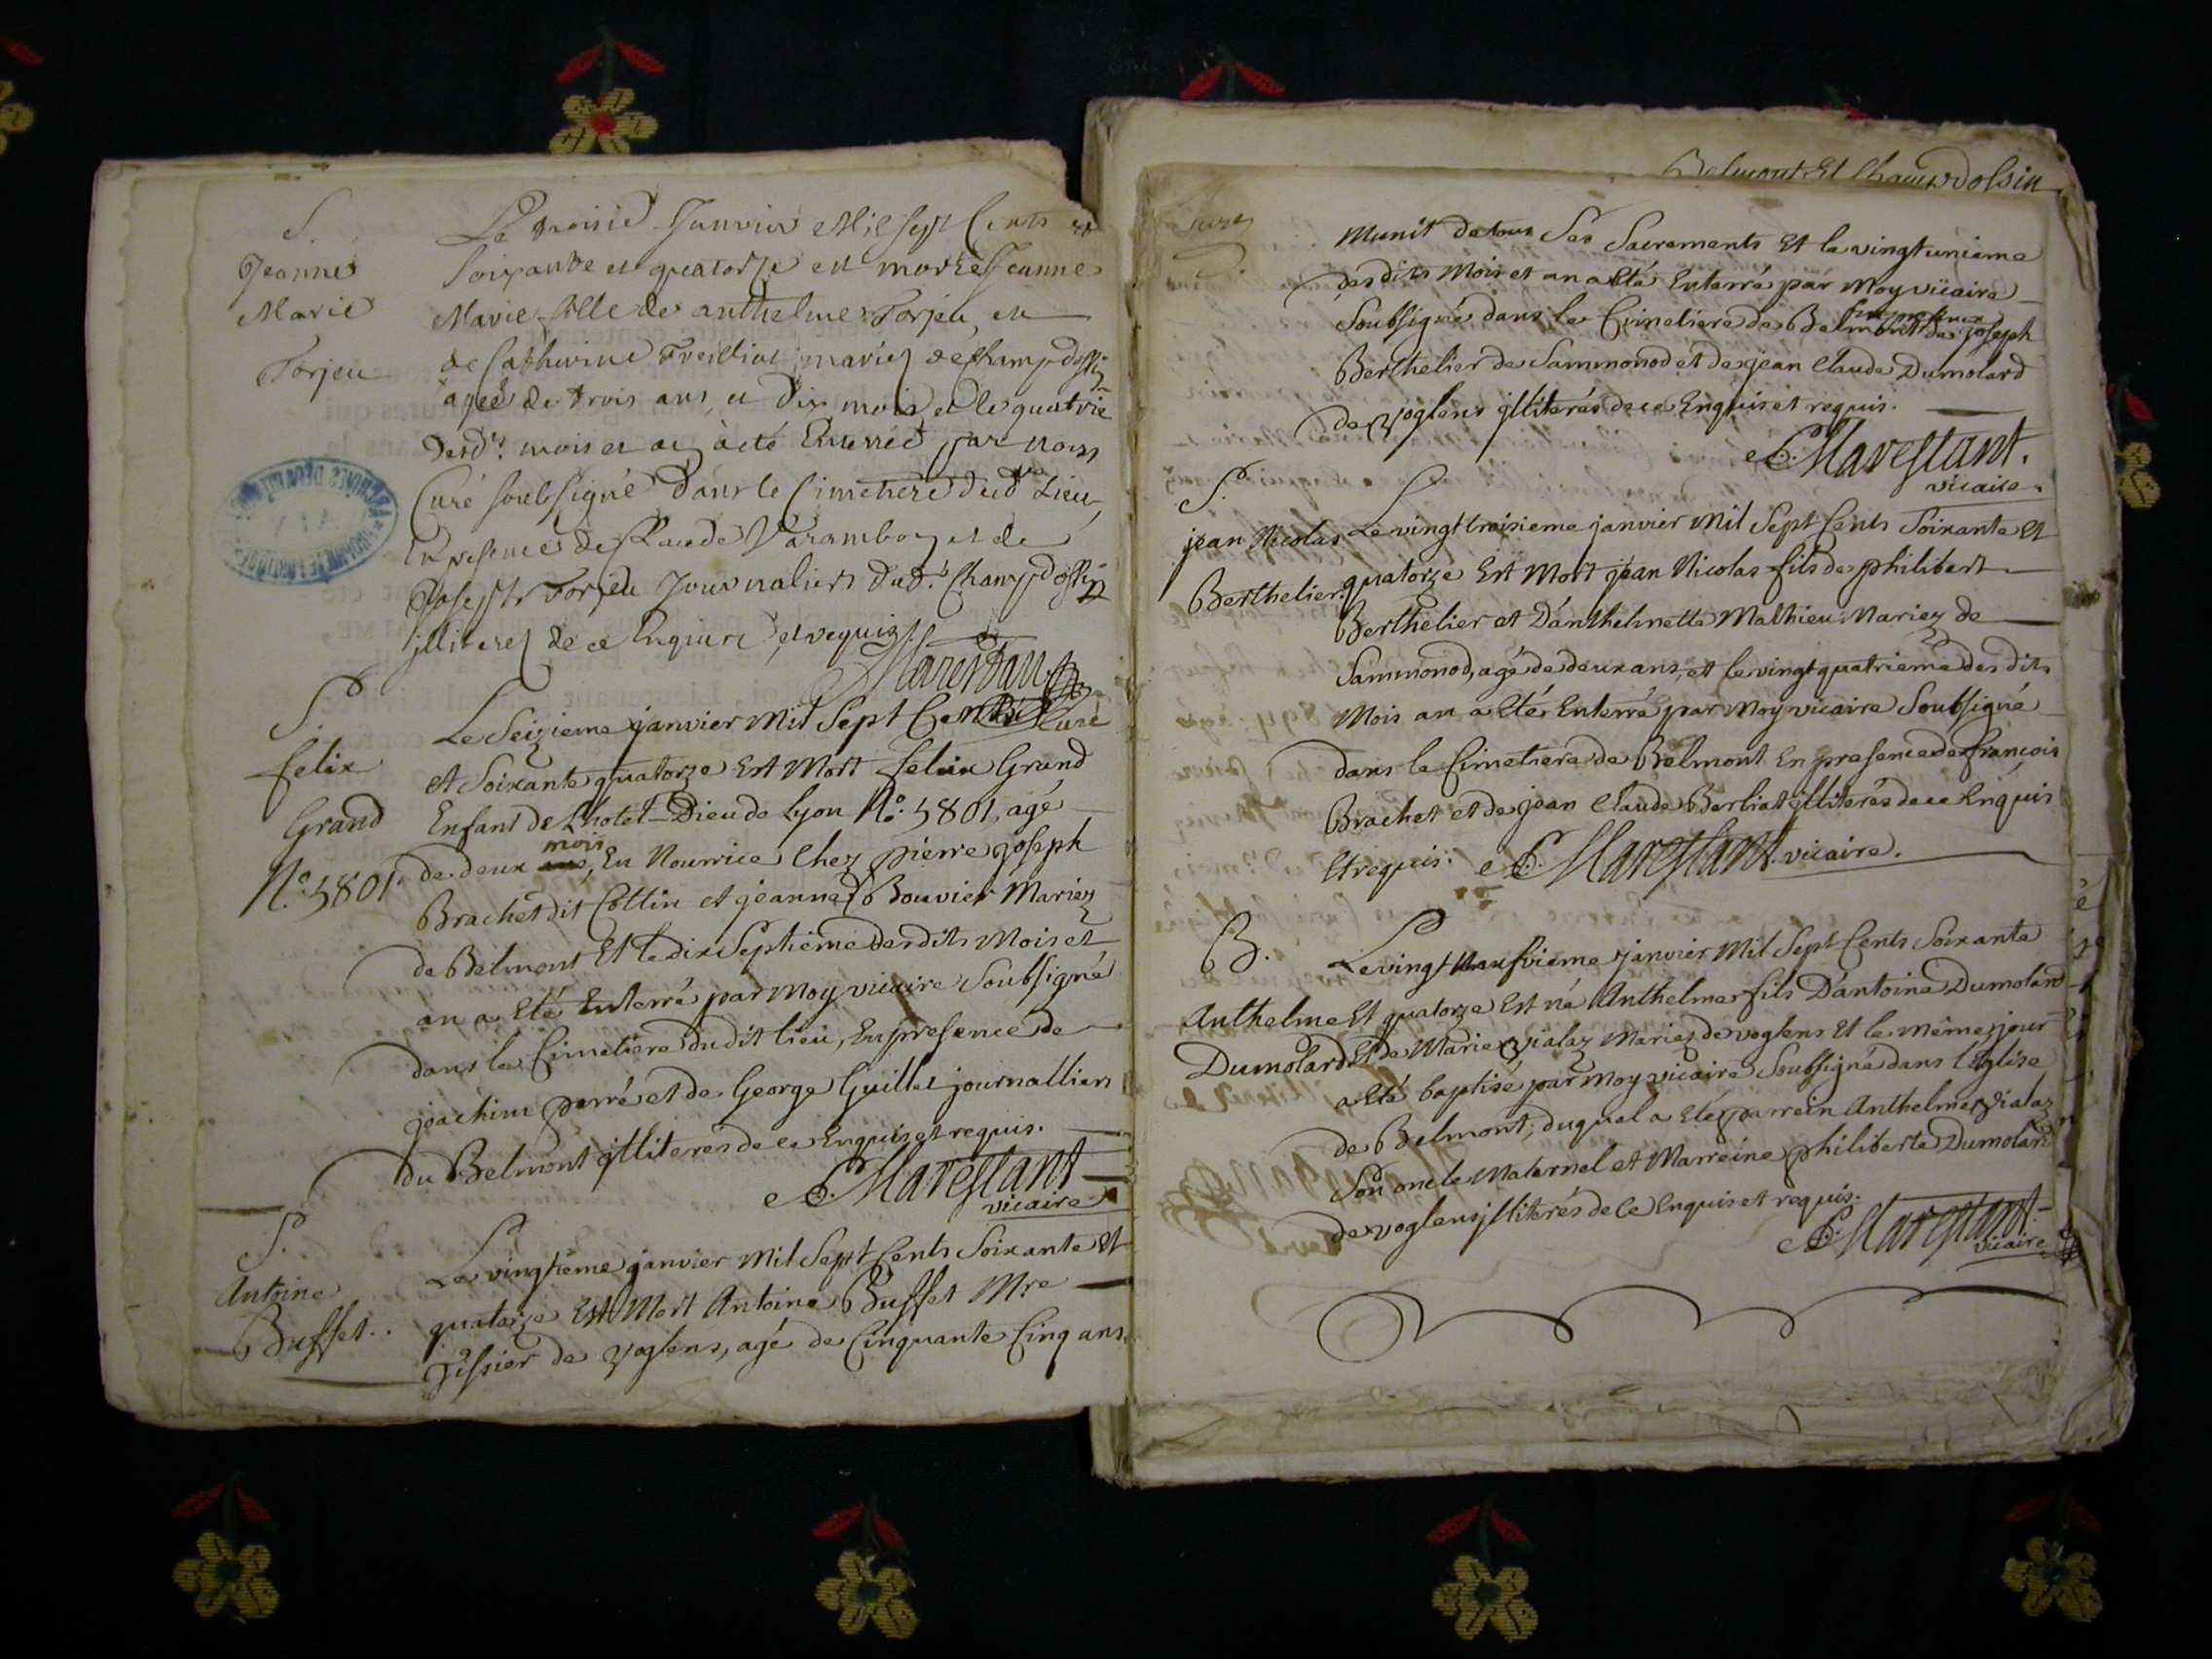 S.
Jeanne
Marie
Forjeu
Le troisiè Janvier Mil Sept Cents et
soixante et quatorze est morte Jeanne
Marie fille de anthelme Forjeu, et
de Catherine mariez de Champdossin
agée de trois ans, et dix mois et le quatriè
desdts. mois et an à été Enterrée par nous
Curé soubsigné dans le Cimetiere dud. Lieu,
En presence de Claude Varamboz et de
Joseph Forjeu Journaliers dud. Champdossin
illiterez de ce Enquire et requiz.
Marestan
Curé
S.
felix
Grand
No. 5801.
Le Seizieme janvier Mil Sept Cents
et Soixante quatorze Est Mort felix Grand
Enfant de Lhotel-Dieu de Lyon No. 5801, agé
de deux mois, En Nourrice Chez pierre joseph
Brachet dit Collin et jeanne Bouvier Mariez
de Belmont Et le dix Septiéme desdits Mois et
an a Eté Enterré par Moy vicaire Soubsigné
dans le Cimetiere dudit lieu, En presence de
joachim perré et de George Guillet journalliers
du Belmont jlliterés de ce Enquis et requis.
Marestant
vicaire
S.
Antoine
Buffet.
Le vingtiéme janvier Mil Sept Cents Soixante Et
quatorze Est Mort Antoine Buffet Mre
Tissier de Voglens, agé de Cinquante Cinq ans.
Belmont Et Champdossin
Munit de tous Ses Sacrements Et le vingt unieme
desdits Mois et an a Eté Enterré par Moy vicaire
Soubsigné dans le Cimetiere de Belmont En presence de joseph
Berthelier de Sammonod et de jean Claude Dumolard
de Voglens jlliterés de ce Enquis et requis.
Marestant.
vicaire.
S.
jean Nicolas
Berthelier.
Le vingt troisieme janvier Mil Sept Cents Soixante Et
quatorze Est Mort jean Nicolas fils de philibert
Berthelier et D'anthelmette Mathieu Mariez de
Sammonod, agé de deux ans, et le vingt quatriéme des dits
Mois an a Eté Enterré par Moy vicaire Soubsigné
dans le Cimetiere de Belmont En presence de françois
Brachet et de jean Claude Berliat jlliterés de ce Enquis
Et requis. Marestant vicaire.
B.
Anthelme
Dumolard
Le vingt Neufvieme janvier Mil Sept Cents Soixante
Et quatorze Est né Anthelme fils D'antoine Dumolard
Et de Marie Vialaz Mariez de voglens Et le même jour
a Eté baptisé par Moy vicaire Soubsigné dans l'Eglise
de Belmont, duquel a Eté parrein Anthelme Vialaz
Son oncle Maternel et Marreine philiberte Dumolard
de voglens jlliterés de Ce Enquis et requis.
Marestant
vicaire